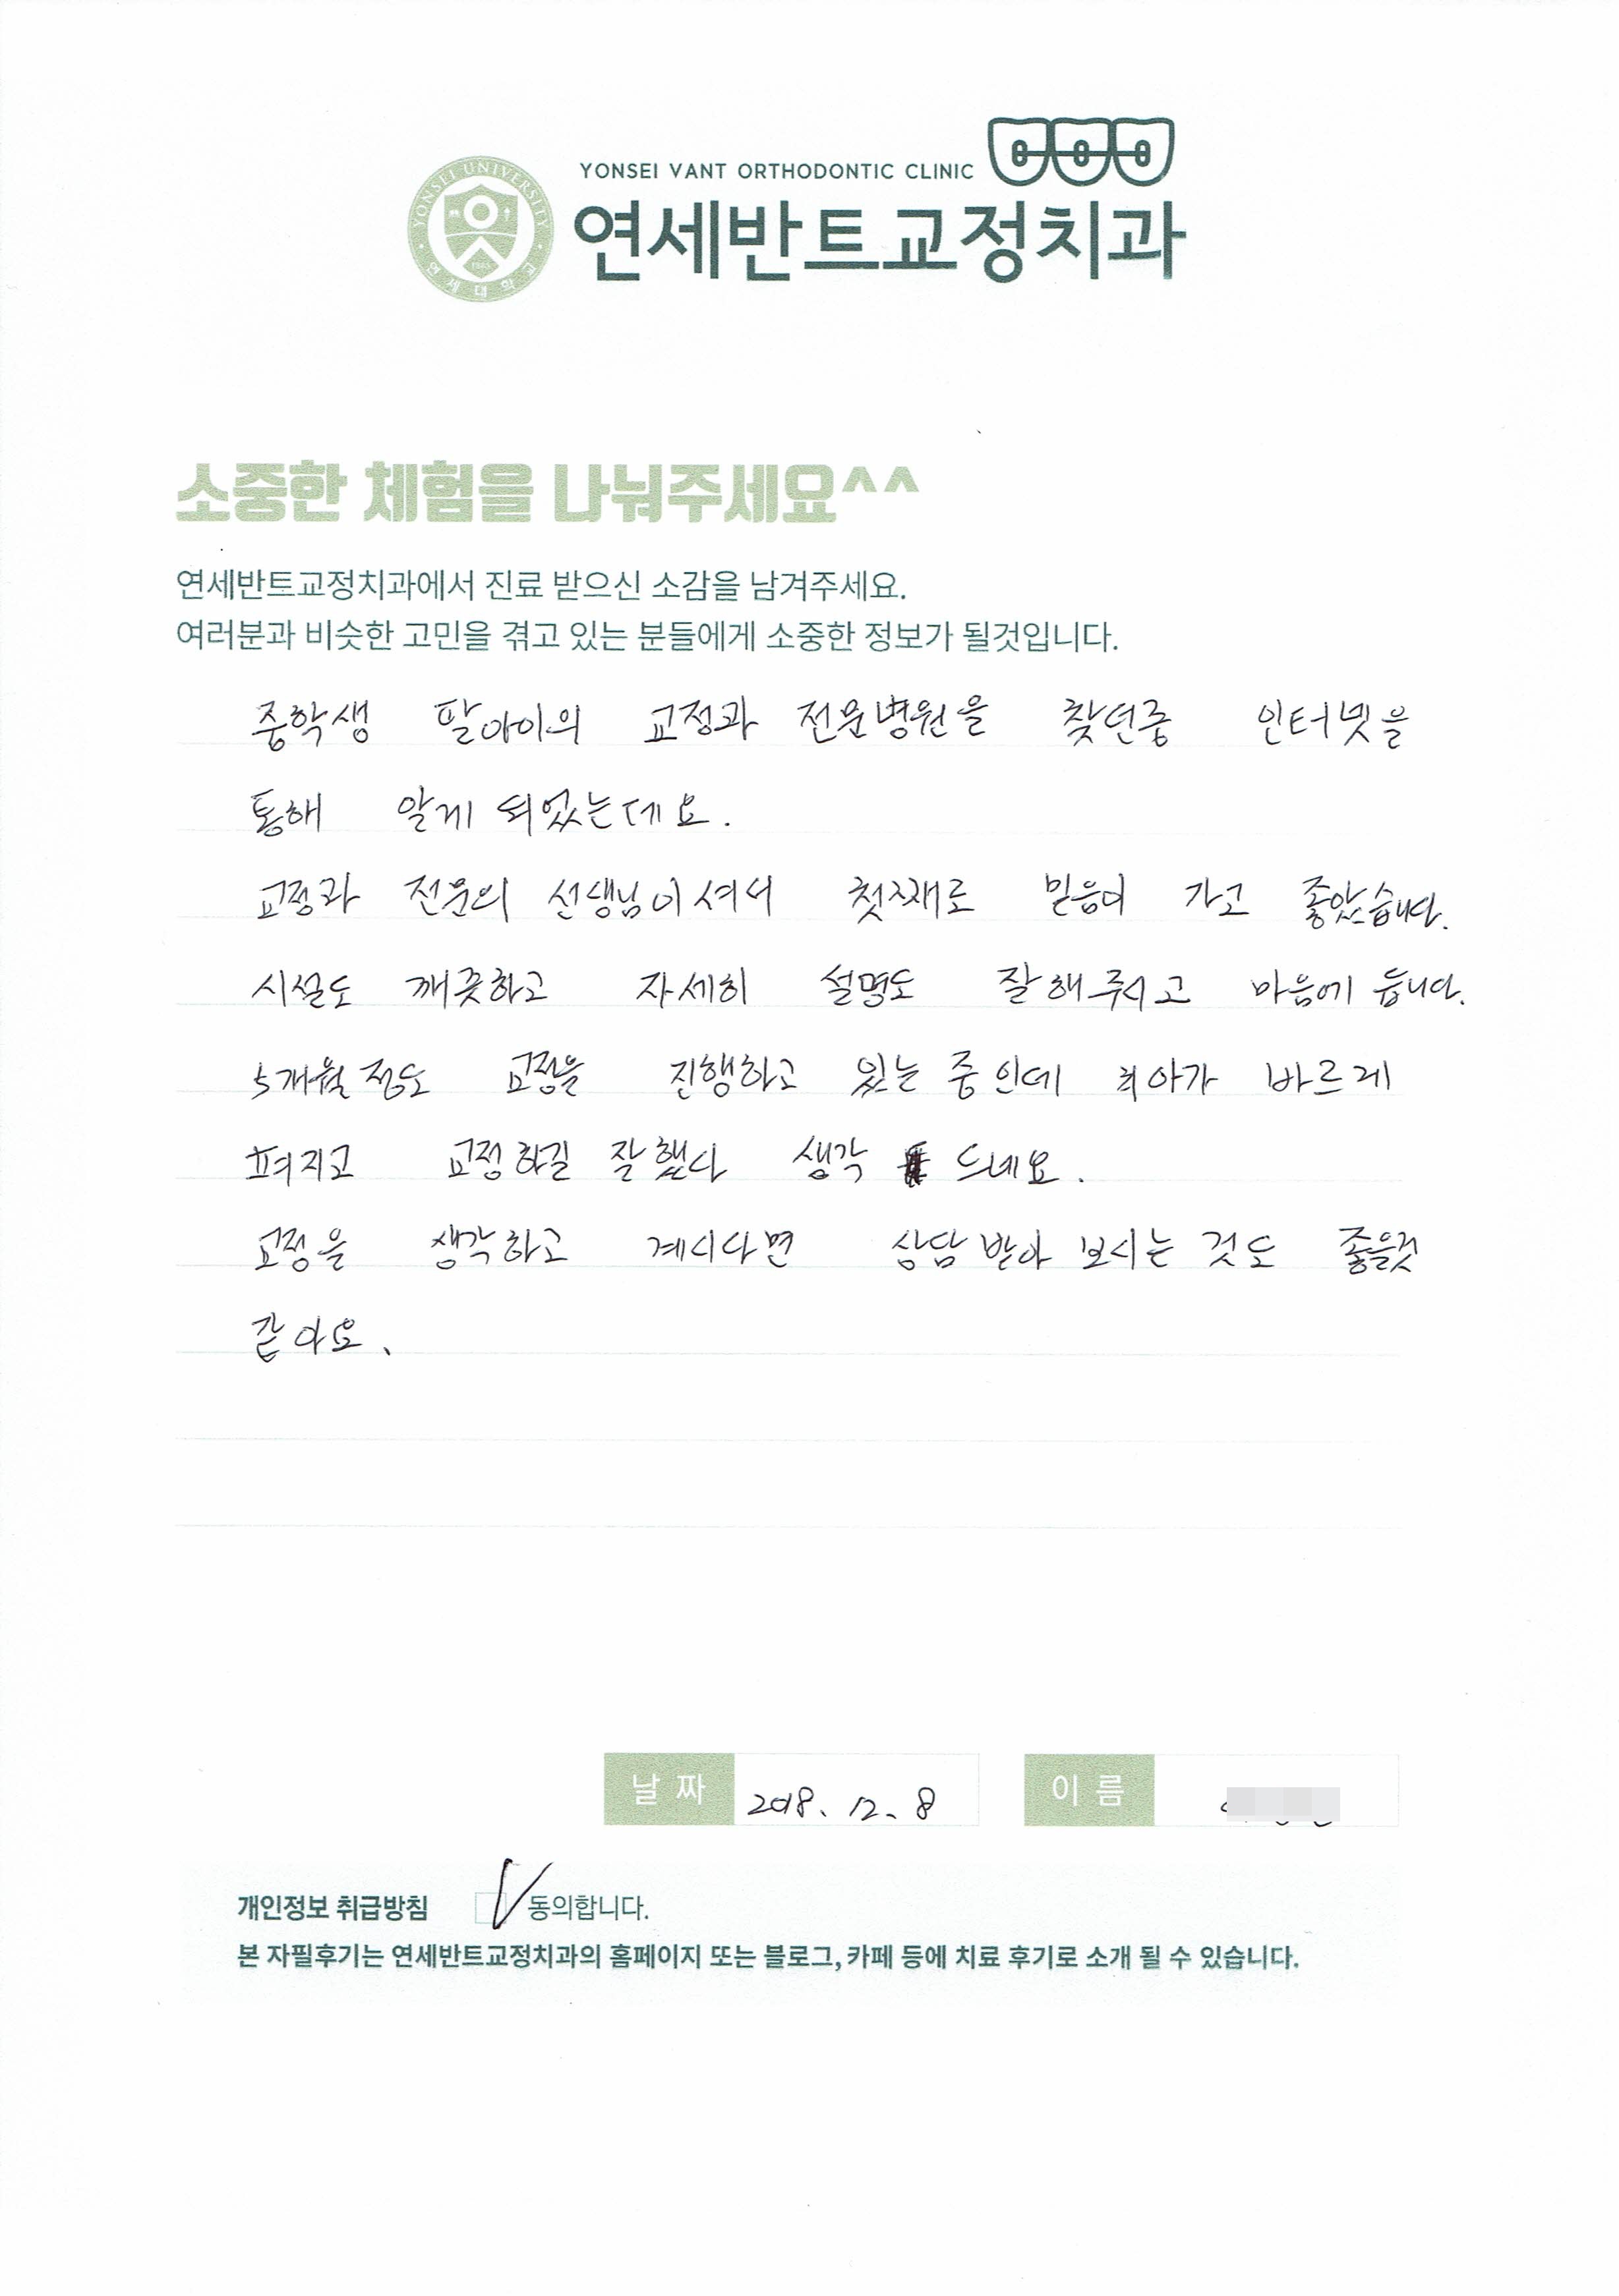 YONSEI VANT ORTHODONTIC CLINIC
YONSEI UNIVERSITY
1885
연세대학교
연세반트교정치과
소중한 체험을 나눠주세요^^
연세반트교정치과에서 진료 받으신 소감을 남겨주세요.
여러분과 비슷한 고민을 겪고 있는 분들에게 소중한 정보가 될것입니다.
중학생 딸아이의 교정과 전문병원을 찾던중 인터넷을
통해 알게 되었는데요.
교정과 전문의 선생님이셔서 첫째로 믿음이 가고 좋았습니다.
시설도 깨끗하고 자세히 설명도 잘해주시고 마음에 듭니다.
5개월정도 교정을 진행하고 있는 중인데 치아가 바르게
펴지고 교정하길 잘했다 생각 드네요.
교정을 생각하고 계시다면 상담받아 보시는 것도 좋을것
같아요.
날짜 2018. 12. 8 이름
개인정보 취급방침 동의합니다.
본 자필후기는 연세반트교정치과의 홈페이지 또는 블로그, 카페 등에 치료 후기로 소개 될 수 있습니다.